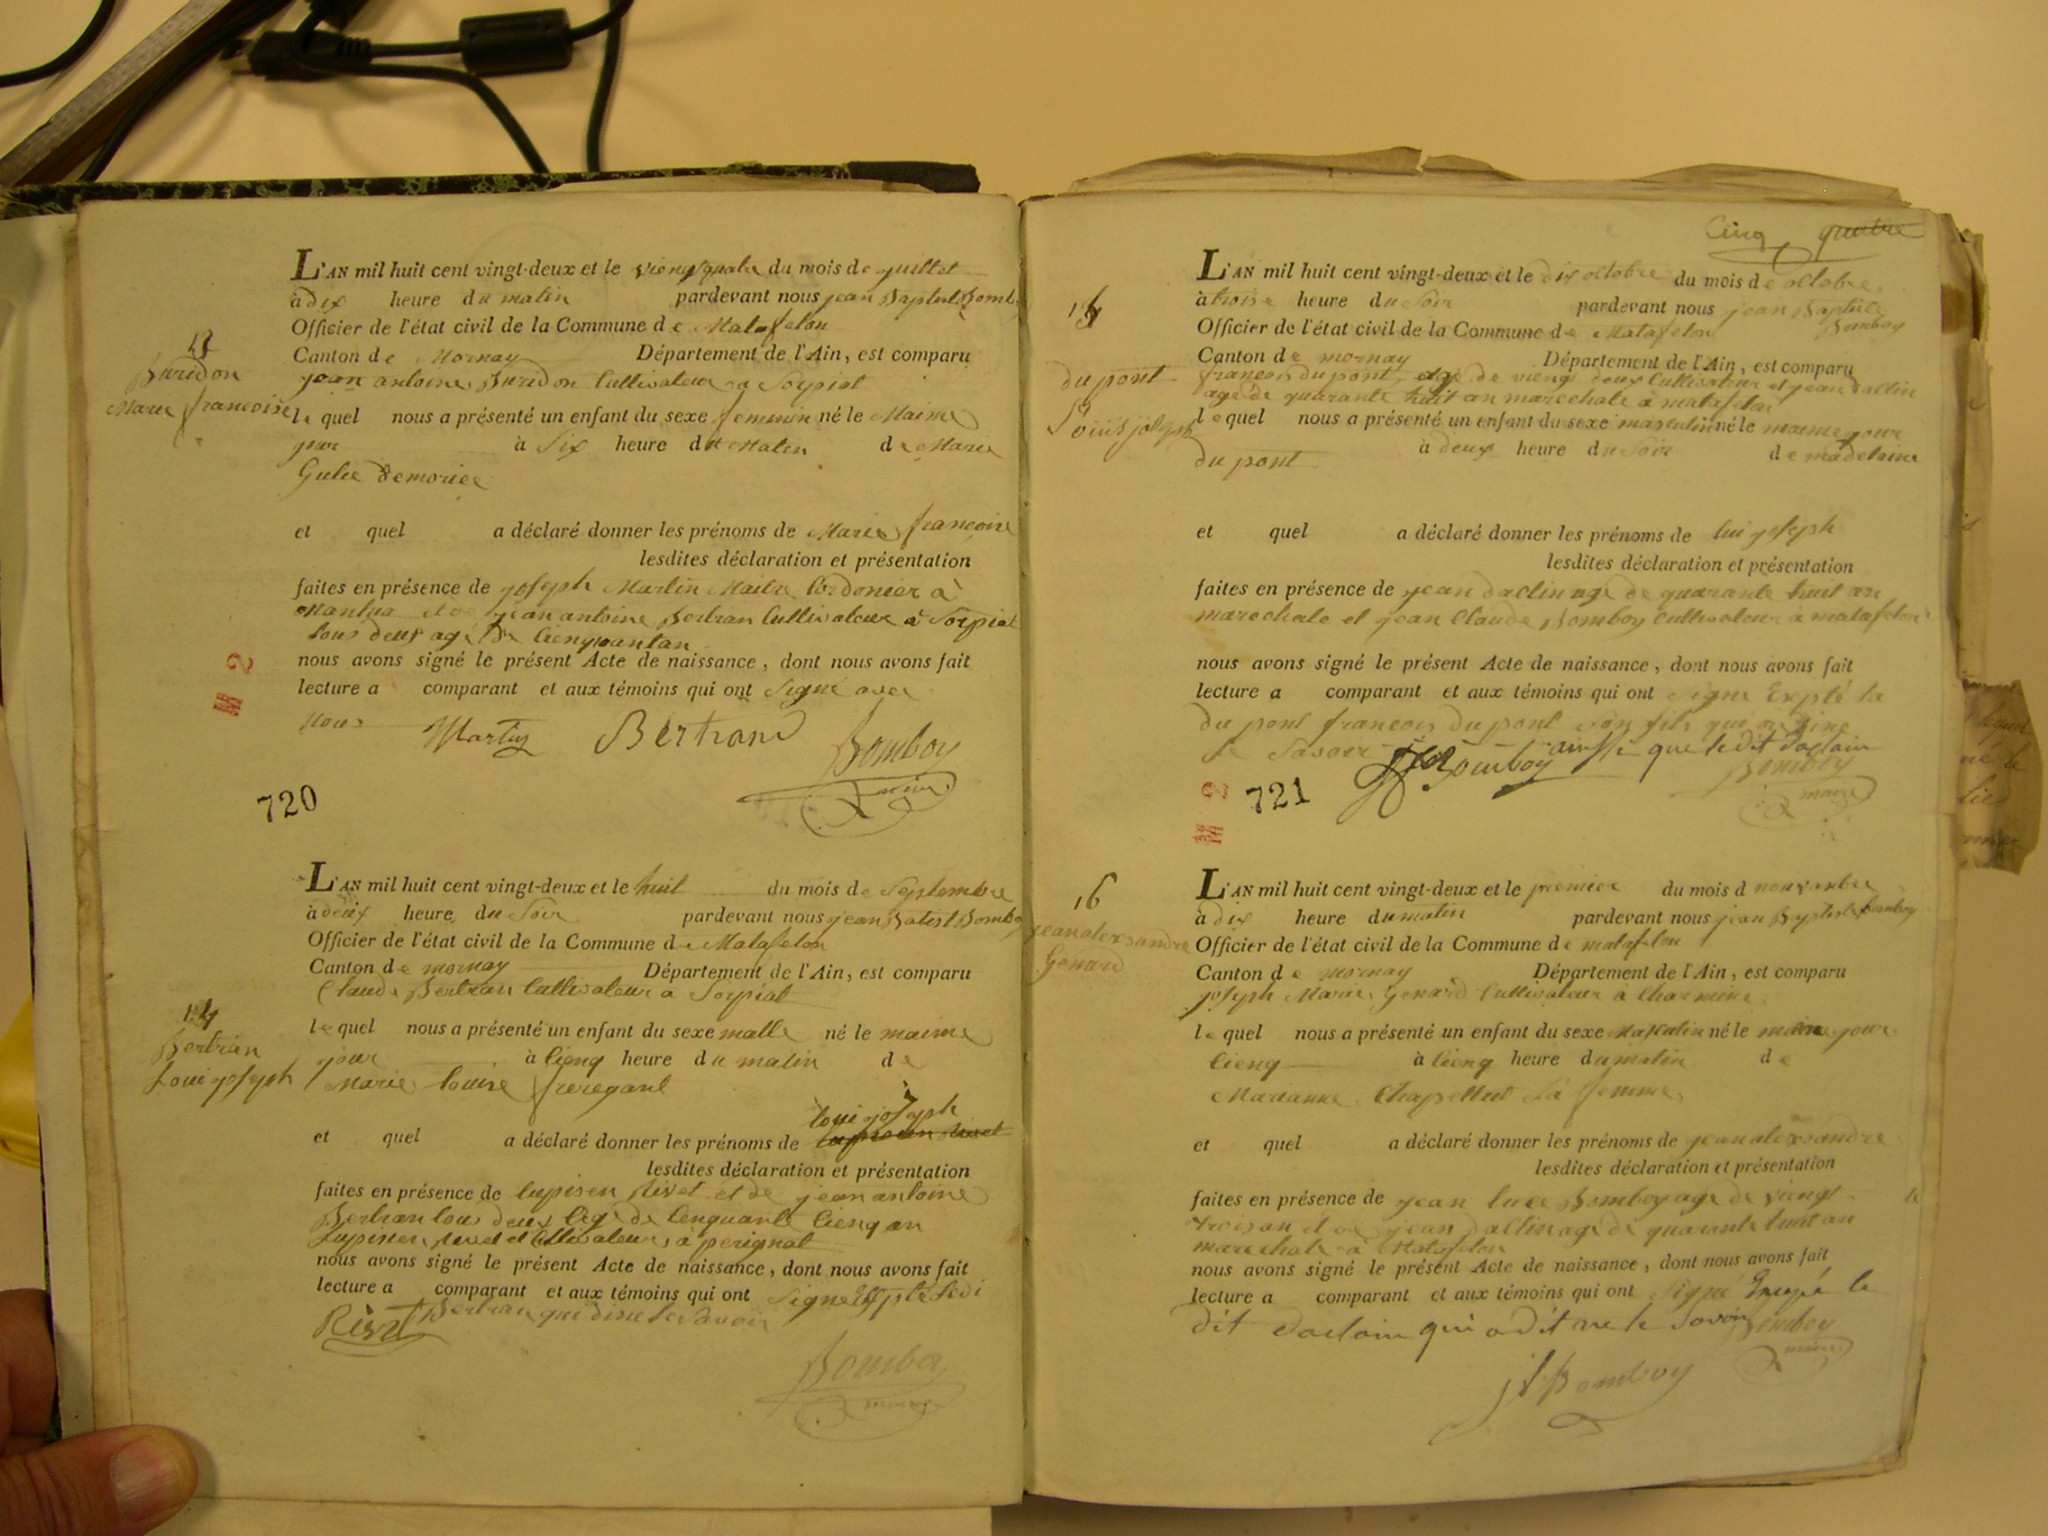 L'AN mil huit cent vingt-deux et le viengt quatre du mois de juillet
à dix heure du matin pardevant nous jean Baptist Bomb
Officier de l'état civil de la Commune de Matafelon
Canton de Mornay Département de l'Ain, est comparu
jean antoine Buridon Cultivateur a Sorpiat
le quel nous a présenté un enfant du sexe feminin né le Maime
jour à Six heure du Maten de Marie
Gulie Demoriee
et quel a déclaré donner les prénoms de Marie francoise
lesdites déclaration et présentation
faites en présence de joseph Martin Maitre Cordonier à
et de jean antoine Bertran Cultivateur à Sorpiat
tous deux agé de cienquantan
nous avons signé le présent Acte de naissance, dont nous avons fait
lecture a comparant et aux témoins qui ont Signé avec
Nous Martin Bertrand Bomboy
maire
13
Buridon
Marie francoise
M 2
720
L'AN mil huit cent vingt-deux et le huit du mois de Septembre
à deux heure du Soir pardevant nous jean Batist Bomboy
Officier de l'état civil de la Commune de Matafelon
Canton de mornay Département de l'Ain, est comparu
Claude Bertran Cultivateur a Sorpiat
le quel nous a présenté un enfant du sexe malle né le maime
jour à cienq heure du matin de
Marie louise fueregant
loui joseph
et quel a déclaré donner les prénoms de
lesdites déclaration et présentation
faites en présence de lupisen Rivet et de jean antoine
Bertran tous deux agé de cenquante cienq an
Lupisien Rivet et Cultivateur à perignat
nous avons signé le présent Acte de naissance, dont nous avons fait
lecture a comparant et aux témoins qui ont Signé Exsplé ledi
Rivet Bertran qui disne le Savoir
Bomboy
maire
14
Bertran
Loui joseph
Cinq quatre
L'AN mil huit cent vingt-deux et le dix octobre du mois de octobre
à troise heure du Soir pardevant nous jean Baptiste
Bomboy
Officier de l'état civil de la Commune de Matafelon
Canton de mornay Département de l'Ain, est comparu
francois du pont age de viengt deux Cultivateur et jean daclin
agé de quarante huit an marechale à matafelon
le quel nous a présenté un enfant du sexe masculin né le maime jour
du pont à deux heure du Soir de madelaine
et quel a déclaré donner les prénoms de lui joseph
lesdites déclaration et présentation
faites en présence de jean daclin agé de quarante huit an
marechale et jean Claude Bomboy Cultivateur à matafelon
nous avons signé le présent Acte de naissance, dont nous avons fait
lecture a comparant et aux témoins qui ont Signé Expté la
du pont francois du pont son fils qui on dine
le Savoir ainssi que le dit daclain
Bomboy Bomboy
maire
15
du pont
Louis joseph
M 2
721
L'AN mil huit cent vingt-deux et le premier du mois d nouvanbre
à dix heure du matin pardevant nous jean Baptiste Bomboy
Officier de l'état civil de la Commune de matafelon
Canton de mornay Département de l'Ain, est comparu
joseph Marie Genard Cultivateur à Charmine
le quel nous a présenté un enfant du sexe Masculin né le maime jour
cienq à cienq heure du matin de
Marianne Chapellut Sa femme
et quel a déclaré donner les prénoms de jean alexsandre
lesdites déclaration et présentation
faites en présence de jean luce Bomboy agé de viengt
troisan et de jean daclin agé de quarante huit an
marechale à Matafelon
nous avons signé le présent Acte de naissance, dont nous avons fait
lecture a comparant et aux témoins qui ont Signé Excepé le
dit daclain qui a dit ne le Savoir Bomboy
maire
jl Bomboy
16
jean alexsandre
Genard